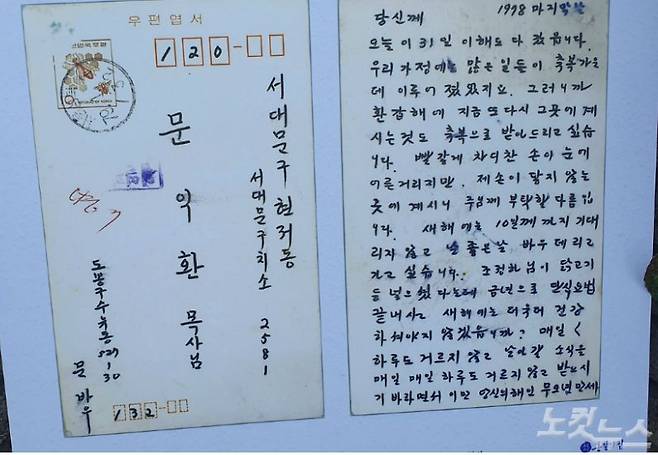 우편엽서
120-
서대문구 현저동
서대문구치소 2581
문익환 목사님
도봉구 수유동 527-30
문 바우
132-
당신께
1978 마지막날
오늘이 31일 이해도 다 갔읍니다.
우리 가정에는 많은 일들이 축복 가운
데 이루어 졌었지요. 그러니까
환갑해에 지금 또다시 그곳에 계
시는것도 축복으로 받아드리고 싶습
니다. 빨갛게 차디찬 손이 눈에
어른거리지만, 제손이 닿지 않는
곳에 계시니 주님께 부탁할 따름입
니다. 새해에는 10일께 까지 기다
리지 않고 날 좋은날 바우 데리고
가고 싶습니다. 조정하님이 닭고기
를 넣으셨다는데 금년으로 단식요법
끝내시고 새해에는 더욱더 건강
하셔야지 않겠읍니까? 매일
하루도 거르지 않고 날아갈 소식을
매일 매일 하루도 거르지 않고 받으시
기 바라면서 이만
노컷뉴스